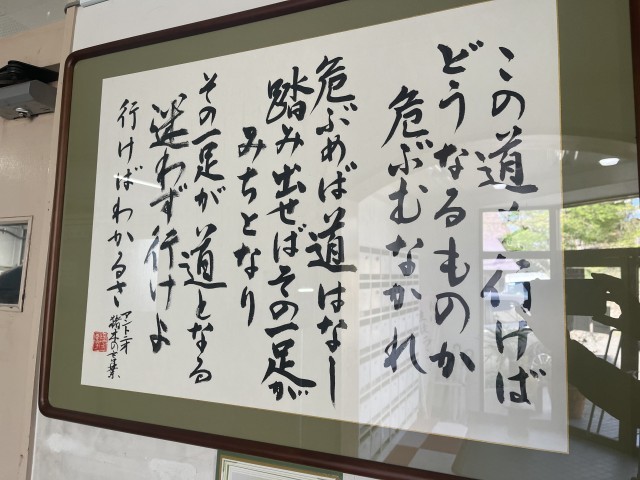 この道を行けば
どうなるものか
危ぶむなかれ
危ぶめば道はなし
踏み出せばその一足が
みちとなり
その一足が道となる
迷わず行けよ
行けばわかるさ
アントニオ
猪木の言葉